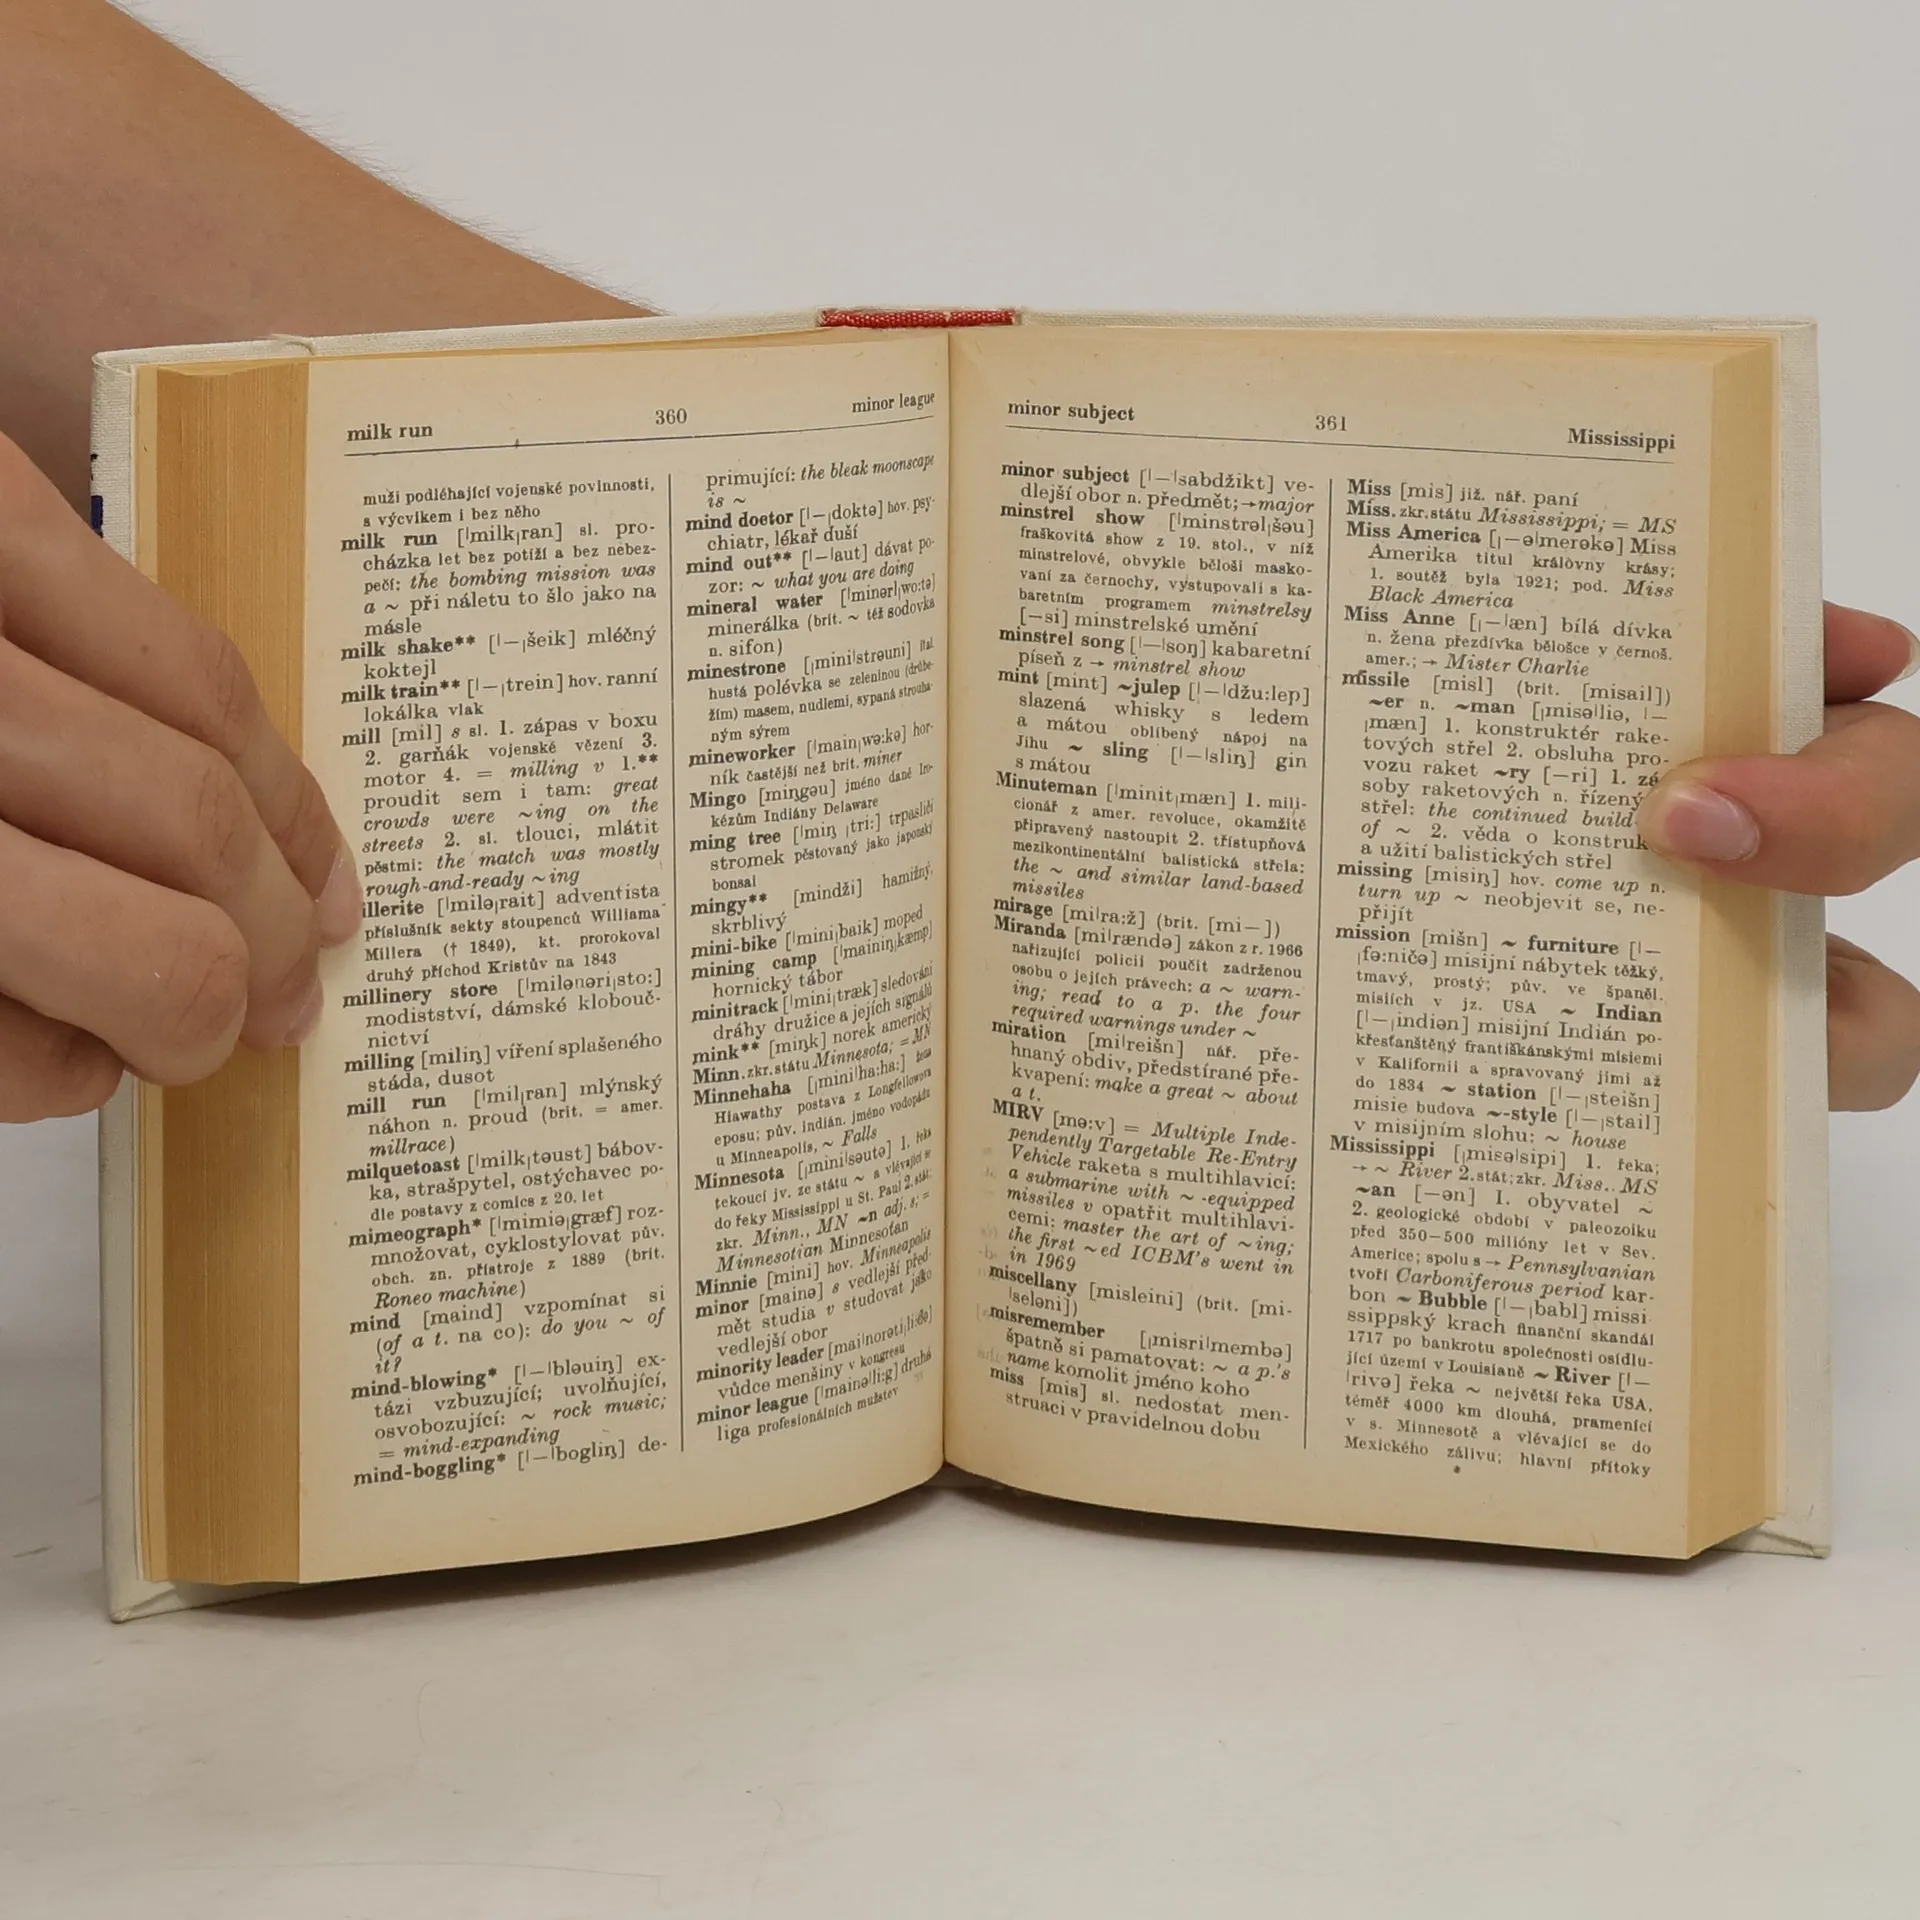 milk run
360
minor league
muži podléhající vojenské povinnosti,
a výcvikem i bez něho
milk run [ˈmilkˌran] sl. pro-
cházka let bez potíží a bez nebez-
pečí: the bombing mission was
a ~ při náletu to šlo jako na
másle
milk shake** [ˈ—ˌšeik] mléčný
koktejl
milk train** [ˈ—ˌtrein] hov. ranní
lokálka vlak
mill [mil] s sl. 1. zápas v boxu
2. garňák vojenské vězení 3.
motor 4. = milling v 1.**
proudit sem i tam: great
crowds were ~ing on the
streets 2. sl. tlouci, mlátit
pěstmi: the match was mostly
rough-and-ready ~ing
illerite [ˈmiləˌrait] adventista
příslušník sekty stoupenců Williama
Millera († 1849), kt. prorokoval
druhý příchod Kristův na 1843
millinery store [ˈmilənəriˌsto:]
modistství, dámské klobouč-
nictví
milling [miliŋ] víření splašeného
stáda, dusot
mill run [ˈmilˌran] mlýnský
náhon n. proud (brit. = amer.
millrace)
milquetoast [ˈmilkˌtəust] bábov-
ka, strašpytel, ostýchavec po-
dle postavy z comics z 20. let
mimeograph* [ˈmimiəˌgræf] roz-
množovat, cyklostylovat pův.
obch. zn. přístroje z 1889 (brit.
Roneo machine)
mind [maind] vzpomínat si
(of a t. na co): do you ~ of
it?
mind-blowing* [ˈ—ˈbləuiŋ] ex-
tázi vzbuzující; uvolňující,
osvobozující: ~ rock music;
= mind-expanding
mind-boggling* [ˈ—ˈbogliŋ] de-
primující: the bleak moonscape
is ~
mind doctor [ˈ—ˌdoktə] hov. psy-
chiatr, lékař duší
mind out** [ˈ—ˈaut] dávat po-
zor: ~ what you are doing
mineral water [ˈminərlˌwo:tə]
minerálka (brit. ~ též sodovka
n. sifon)
minestrone [ˌminiˈstrəuni] ital.
hustá polévka se zeleninou (drůbe-
žím) masem, nudlemi, sypaná strouha-
ným sýrem
mineworker [ˈmainˌwə:kə] hor-
ník častější než brit. miner
Mingo [miŋgəu] jméno dané Iro-
kézům Indiány Delaware
ming tree [ˈmiŋ ˌtri:] trpasličí
stromek pěstovaný jako japonský
bonsai
mingy** [mindži] hamižný,
skrblivý
mini-bike [ˈminiˌbaik] moped
mining camp [ˈmaininˌkæmp]
hornický tábor
minitrack [ˈminiˌtræk] sledování
dráhy družice a jejích signálů
mink** [miŋk] norek americký
Minn. zkr. státu Minnesota; = MN
Minnehaha [ˌminiˈha:ha:] žena
Hiawathy postava z Longfellowova
eposu; pův. indián. jméno vodopádu
u Minneapolis, ~ Falls
Minnesota [ˌminiˈsəutə] 1. řeka
tekoucí jv. ze státu ~ a vlévající se
do řeky Mississippi u St. Paul 2. stát;
zkr. Minn., MN ~n adj. s; =
Minnesotian Minnesoťan
Minnie [mini] hov. Minneapolis
minor [mainə] s vedlejší před-
mět studia v studovat jako
vedlejší obor
minority leader [maiˈnorətiˌli:də]
vůdce menšiny v kongresu
minor league [ˈmainəˈli:g] druhá
liga profesionálních mužstev
minor subject
361
Mississippi
minor subject [ˈ—ˈsabdžikt] ve-
dlejší obor n. předmět; → major
minstrel show [ˈminstrəlˌšəu]
fraškovitá show z 19. stol., v níž
minstrelové, obvykle běloši masko-
vaní za černochy, vystupovali s ka-
baretním programem minstrelsy
[—si] minstrelské umění
minstrel song [ˈ—ˈsoŋ] kabaretní
píseň z → minstrel show
mint [mint] ~julep [ˈ—ˈdžu:lep]
slazená whisky s ledem
a mátou oblíbený nápoj na
Jihu ~ sling [ˈ—ˈsliŋ] gin
s mátou
Minuteman [ˈminitˌmæn] 1. mili-
cionář z amer. revoluce, okamžitě
připravený nastoupit 2. třístupňová
mezikontinentální balistická střela:
the ~ and similar land-based
missiles
mirage [miˈra:ž] (brit. [mi—])
Miranda [miˈrændə] zákon z r. 1966
nařizující policii poučit zadrženou
osobu o jejích právech: a ~ warn-
ing; read to a p. the four
required warnings under ~
miration [miˈreišn] nář. pře-
hnaný obdiv, předstírané pře-
kvapení: make a great ~ about
a t.
MIRV [mə:v] = Multiple Inde-
pendently Targetable Re-Entry
Vehicle raketa s multihlavicí:
a submarine with ~ -equipped
missiles v opatřit multihlavi-
cemi: master the art of ~ing;
the first ~ed ICBM's went in
in 1969
miscellany [misleini] (brit. [mi-
ˈseləni])
misremember [ˌmisriˈmembə]
špatně si pamatovat: ~ a p.'s
name komolit jméno koho
miss [mis] sl. nedostat men-
struaci v pravidelnou dobu
Miss [mis] již. nář. paní
Miss. zkr. státu Mississippi; = MS
Miss America [ˌ—əˈmerəkə] Miss
Amerika titul královny krásy;
1. soutěž byla 1921; pod. Miss
Black America
Miss Anne [ˌ—ˈæn] bílá dívka
n. žena přezdívka bělošce v černoš.
amer.; → Mister Charlie
missile [misl] (brit. [misail])
~er n. ~man [ˌmisəˈliə, ˈ—
ˌmæn] 1. konstruktér rake-
tových střel 2. obsluha pro-
vozu raket ~ry [—ri] 1. zá-
soby raketových n. řízený
střel: the continued build-
of ~ 2. věda o konstruk
a užití balistických střel
missing [misiŋ] hov. come up n.
turn up ~ neobjevit se, ne-
přijít
mission [mišn] ~ furniture [ˈ—
ˌfə:ničə] misijní nábytek těžký,
tmavý, prostý; pův. ve španěl.
misiích v jz. USA ~ Indian
[ˈ—ˌindiən] misijní Indián po-
křesťanštěný františkánskými misiemi
v Kalifornii a spravovaný jimi až
do 1834 ~ station [ˈ—ˌsteišn]
misie budova ~-style [ˈ—ˌstail]
v misijním slohu: ~ house
Mississippi [ˌmisəˈsipi] 1. řeka;
→ ~ River 2. stát; zkr. Miss., MS
~an [—ən] 1. obyvatel ~
2. geologické období v paleozoiku
před 350–500 milióny let v Sev.
Americe; spolu s → Pennsylvanian
tvoří Carboniferous period kar-
bon ~ Bubble [ˈ—ˌbabl] missi
ssippský krach finanční skandál
1717 po bankrotu společnosti osídlu-
jící území v Louisianě ~ River [ˈ—
ˈrivə] řeka ~ největší řeka USA,
téměř 4000 km dlouhá, pramenící
v s. Minnesotě a vlévající se do
Mexického zálivu; hlavní přítoky